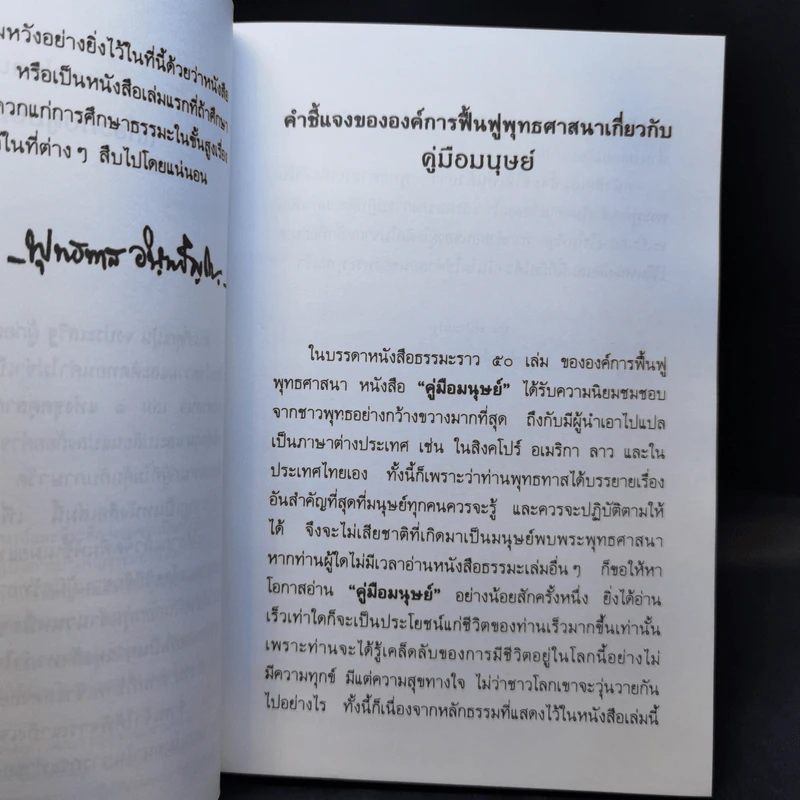 มหวังอย่างยิ่งไว้ในที่นี้ด้วยว่าหนังสือ
หรือเป็นหนังสือเล่มแรกที่ถ้าศึกษา
ดวกแก่การศึกษาธรรมะในขั้นสูงเรื่อง
ในที่ต่างๆ สืบไปโดยแน่นอน
พุทธทาส อินทปัญโญ
คำชี้แจงขององค์การฟื้นฟูพุทธศาสนาเกี่ยวกับ
คู่มือมนุษย์
ในบรรดาหนังสือธรรมะราว ๕๐ เล่ม ขององค์การฟื้นฟู
พุทธศาสนา หนังสือ "คู่มือมนุษย์" ได้รับความนิยมชมชอบ
จากชาวพุทธอย่างกว้างขวางมากที่สุด ถึงกับมีผู้นำเอาไปแปล
เป็นภาษาต่างประเทศ เช่น ในสิงคโปร์ อเมริกา ลาว และใน
ประเทศไทยเอง ทั้งนี้ก็เพราะว่าท่านพุทธทาสได้บรรยายเรื่อง
อันสำคัญที่สุดที่มนุษย์ทุกคนควรจะรู้ และควรจะปฏิบัติตามให้
ได้ จึงจะไม่เสียชาติที่เกิดมาเป็นมนุษย์พบพระพุทธศาสนา
หากท่านผู้ใดไม่มีเวลาอ่านหนังสือธรรมะเล่มอื่นๆ ก็ขอให้หา
โอกาสอ่าน "คู่มือมนุษย์" อย่างน้อยสักครั้งหนึ่ง ยิ่งได้อ่าน
เร็วเท่าใดก็จะเป็นประโยชน์แก่ชีวิตของท่านเร็วมากขึ้นเท่านั้น
เพราะท่านจะได้รู้เคล็ดลับของการมีชีวิตอยู่ในโลกนี้อย่างไม่
มีความทุกข์ มีแต่ความสุขทางใจ ไม่ว่าชาวโลกเขาจะวุ่นวายกัน
ไปอย่างไร ทั้งนี้ก็เนื่องจากหลักธรรมที่แสดงไว้ในหนังสือเล่มนี้